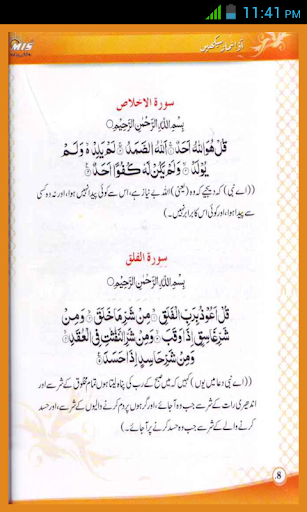 11:41 PM
MIS
آؤ نماز سیکھیں
سورة الاخلاص
بِسْمِ اللهِ الرَّحْمٰنِ الرَّحِيْمِ
قُلْ هُوَ اللهُ اَحَدٌ اَللهُ الصَّمَدُ لَمْ يَلِدْ وَلَمْ
يُوْلَدْ وَلَمْ يَكُنْ لَّهُ كُفُوًا اَحَدٌ
((اے نبی) کہ دیجیے کہ وہ (یعنی) اللہ بے نیاز ہے، اس سے کوئی پیدا نہیں ہوا، اور نہ وہ کسی سے
پیدا ہوا، اور کوئی اس کا برابر نہیں۔)
سورة الفلق
بِسْمِ اللهِ الرَّحْمٰنِ الرَّحِيْمِ
قُلْ اَعُوْذُ بِرَبِّ الْفَلَقِ مِنْ شَرِّ مَا خَلَقَ وَمِنْ
شَرِّ غَاسِقٍ اِذَا وَقَبَ وَمِنْ شَرِّ النَّفّٰثٰتِ فِي الْعُقَدِ
وَمِنْ شَرِّ حَاسِدٍ اِذَا حَسَدَ
((اے نبی دعا میں یوں) کہیں کہ میں صبح کے رب کی پناہ لیتا ہوں تمام مخلوق کے شر سے اور
اندھیری رات کے شر سے جب وہ آجائے، اور گرہوں پر دم کرنے والیوں کے شر سے، اور حسد
کرنے والے کے شر سے جب وہ حسد کرنے پر آجائے۔)
8